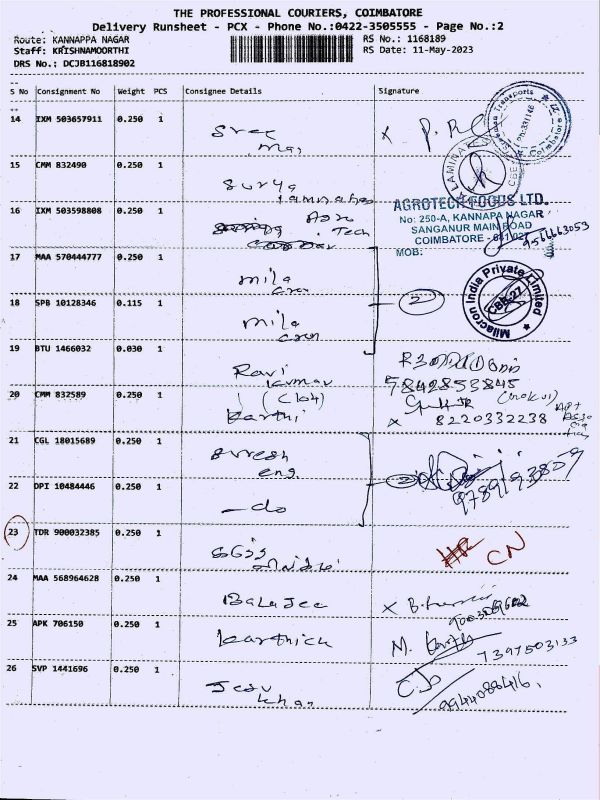 THE PROFESSIONAL COURIERS, COIMBATORE
Delivery Runsheet - PCX - Phone No.:0422-3505555 - Page No.:2
Route: KANNAPPA NAGAR RS No.: 1168189
Staff: KRISHNAMOORTHI RS Date: 11-May-2023
DRS No.: DCJB116818902
S No Consignment No Weight PCS Consignee Details Signature
14 IXM 503657911 0.250 1
Sree
15 CMM 832490 0.250 1
Surya
16 IXM 503598808 0.250 1
Agro
Tech
AGROTECH FOODS LTD.
No: 250-A, KANNAPA NAGAR
SANGANUR MAIN ROAD
COIMBATORE - 641 027
MOB: 9566663053
17 MAA 570444777 0.250 1
mila
cron
2
Milacron India Private Limited
CBE-27
18 SPB 10128346 0.115 1
mila
cron
19 BTU 1466032 0.030 1
Ravi
kumar
7842853845
20 CMM 832589 0.250 1
(C104)
karthi
x 8220332238
21 CGL 18015689 0.250 1
Suresh
eng.
2
9789193809
22 DPI 10484446 0.250 1
-do
23 TDR 900032385 0.250 1
CN
24 MAA 568964628 0.250 1
Balajee
x
25 APK 706150 0.250 1
karthick
M. 7397503133
26 SVP 1441696 0.250 1
9944088416.